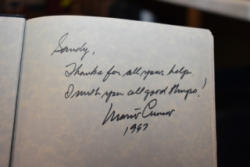 Sandy,
Thanks for all your help
I wish you all good things!
Mario Cuomo
1987